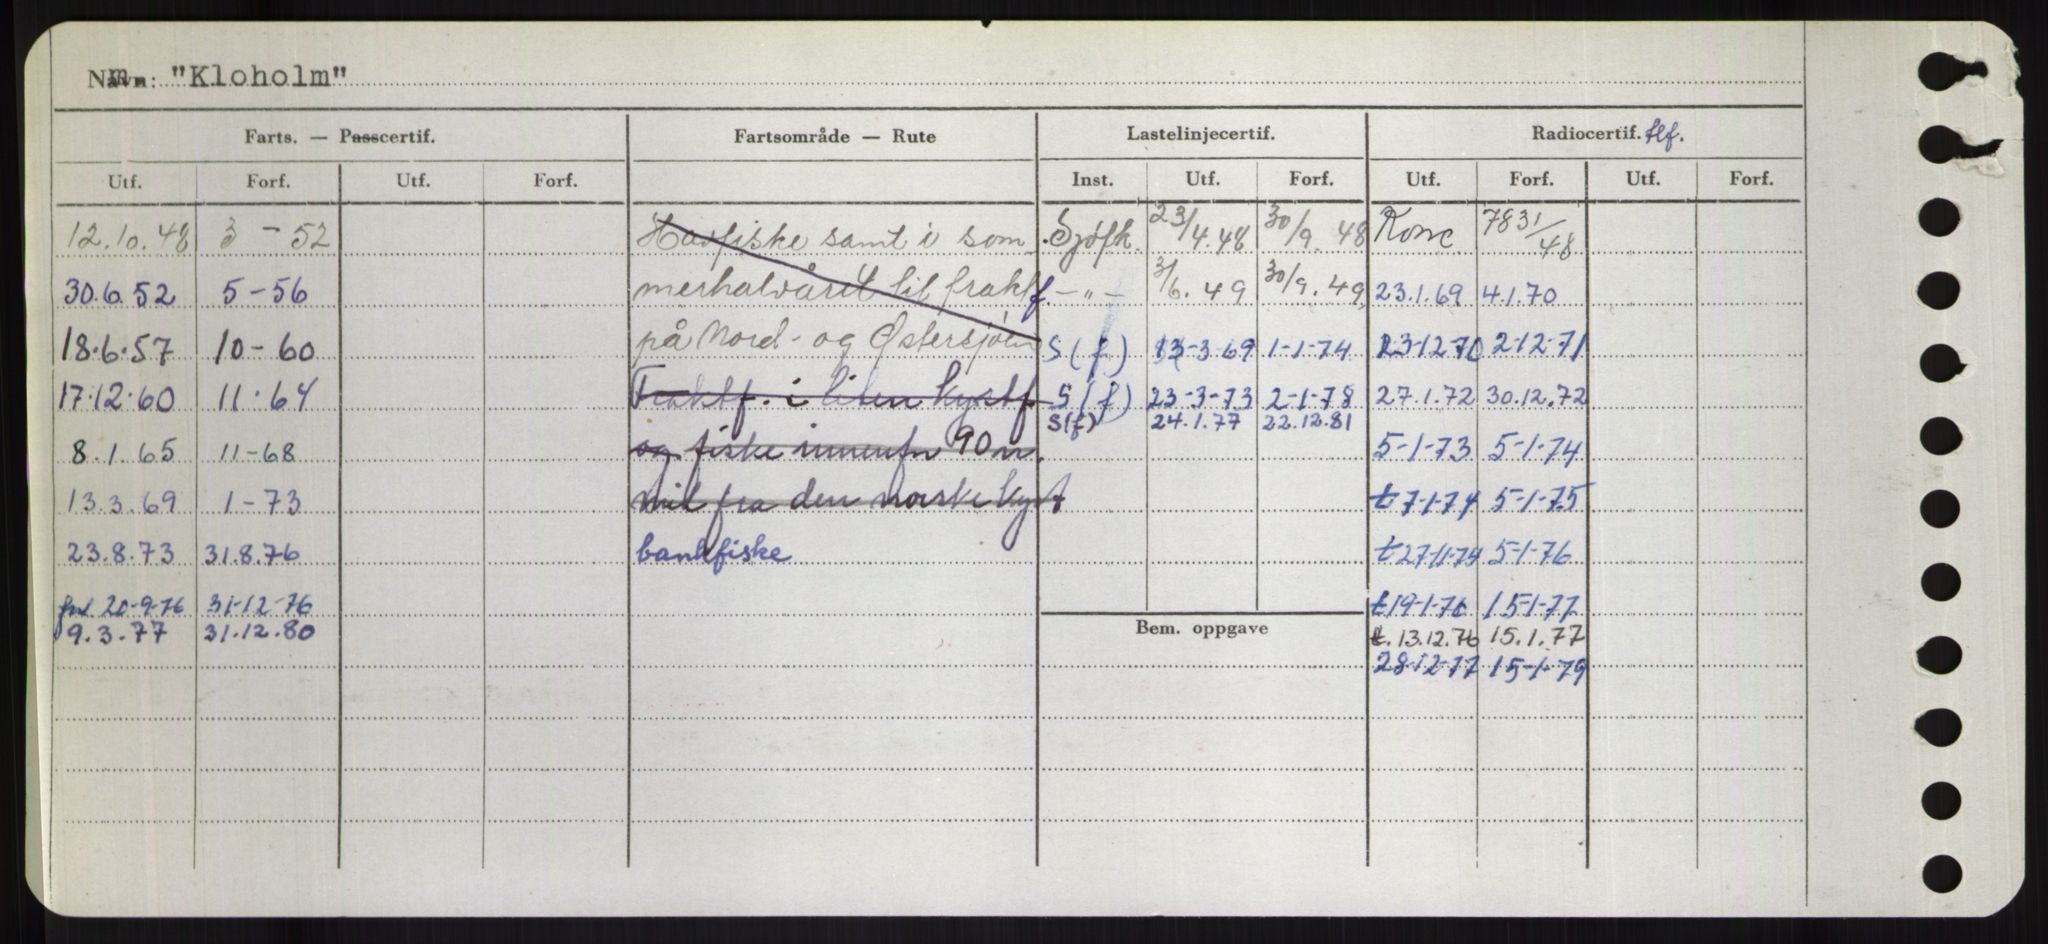 Navn: "Kloholm"
Farts. — Passcertif. Fartsområde — Rute Lastelinjecertif. Radiocertif. tlf.
Utf. Forf. Utf. Forf. Inst. Utf. Forf. Utf. Forf. Utf. Forf.
12.10.48 3 - 52 Havfiske samt i som Sjøfk. 23/4.48 30/9. 48 Konc 7831/48
30.6.52 5-56 merhalvåret til fraktf. -"- 3/6.49 30/9.49 23.1.69 4.1.70
18.6.57 10-60 på Nord- og Østersjøen S(f) 13-3-69 1-1-74 23-12-70 2-12-71
17.12.60 11.64 Fraktf. i liten kystf S(f) 23-3-73 2-1-78 27.1.72 30.12.72
S(f) 24.1.77 22.12.81
8.1.65 11-68 og fiske innenfor 90 n. 5-1-73 5-1-74
13.3.69 1-73 mil fra den norske kyst t 7-1-74 5-1-75
23.8.73 31.8.76 bankfiske t 27-11-74 5-1-76
20-9-76 31-12-76 t 19-1-76 15-1-77
9.3.77 31.12.80 Bem. oppgave t. 13.12.76 15.1.77
28-12-77 15-1-79